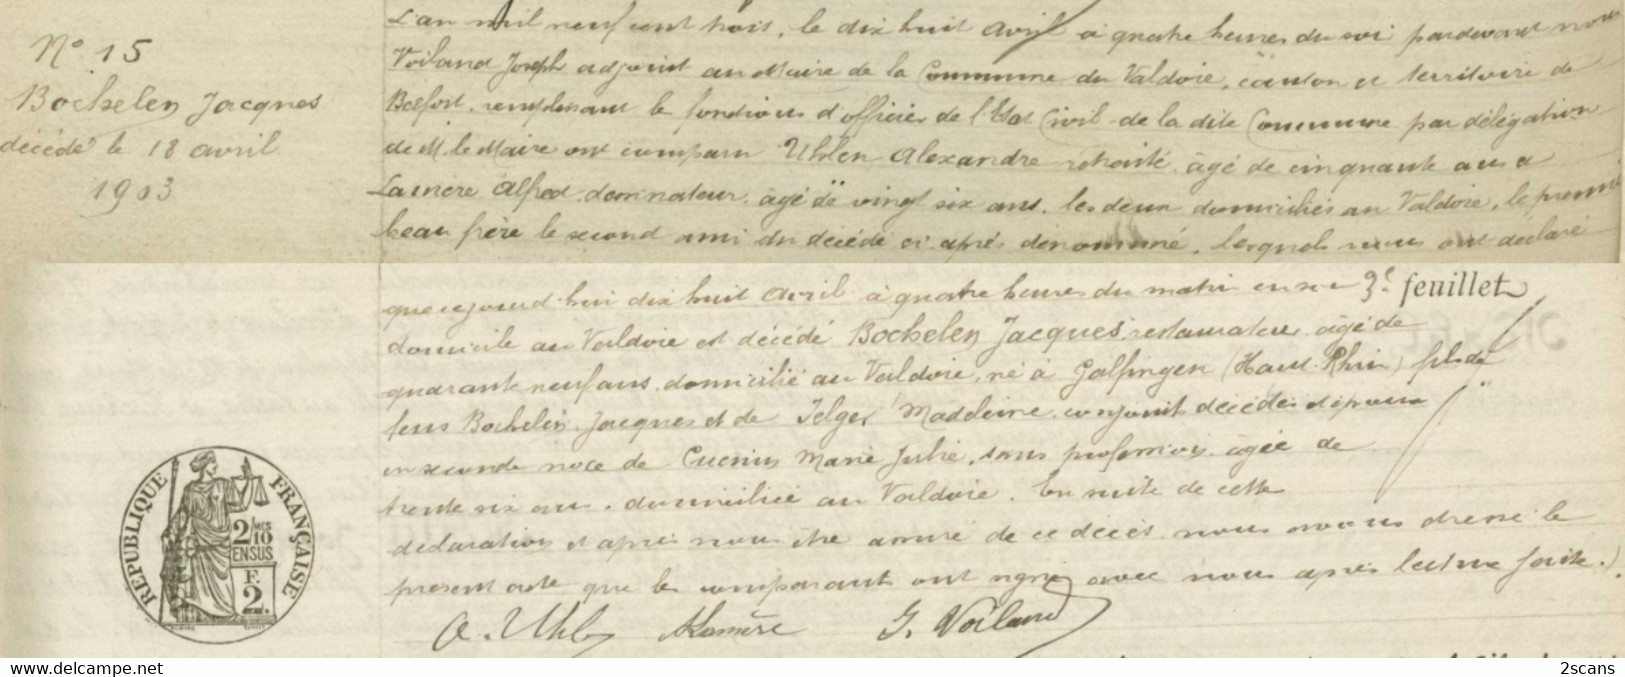 N° 15
Bochelen Jacques
décédé le 18 avril
1903
L'an mil neuf cent trois, le dix huit avril à quatre heures du soir pardevant nous
Voiland Joseph adjoint au Maire de la Commune du Valdoie, canton et territoire de
Belfort, remplissant le fonctions d'officier de l'Etat Civil de la dite Commune par délégation
de M. le Maire ont comparu Uhlen Alexandre retraité âgé de cinquante ans &
Lamère Alfred, dominateur, âgé de vingt six ans, les deux domiciliés au Valdoie, le premier
beau frère le second ami du décédé ci après dénommé, lesquels nous ont déclaré
que cejourd'hui dix huit avril à quatre heures du matin en son
3e feuillet
domicile au Valdoie est décédé Bochelen Jacques, restaurateur, âgé de
quarante neuf ans, domicilié au Valdoie, né à Galfingen (Haut-Rhin) fils de
feus Bochelen Jacques et de Jelger Madeleine, conjoints décédés et époux
en seconde noce de Cuenin Marie Julie, sans profession, âgée de
trente six ans, domiciliée au Valdoie. En suite de cette
déclaration et après nous être assuré de ce décès, nous avons dressé le
présent acte que les comparants ont signé avec nous après lecture faite.
A. Uhlen ALamère J. Voiland
RÉPUBLIQUE FRANÇAISE
2/10 MES
EN SUS
F.
2
2scans